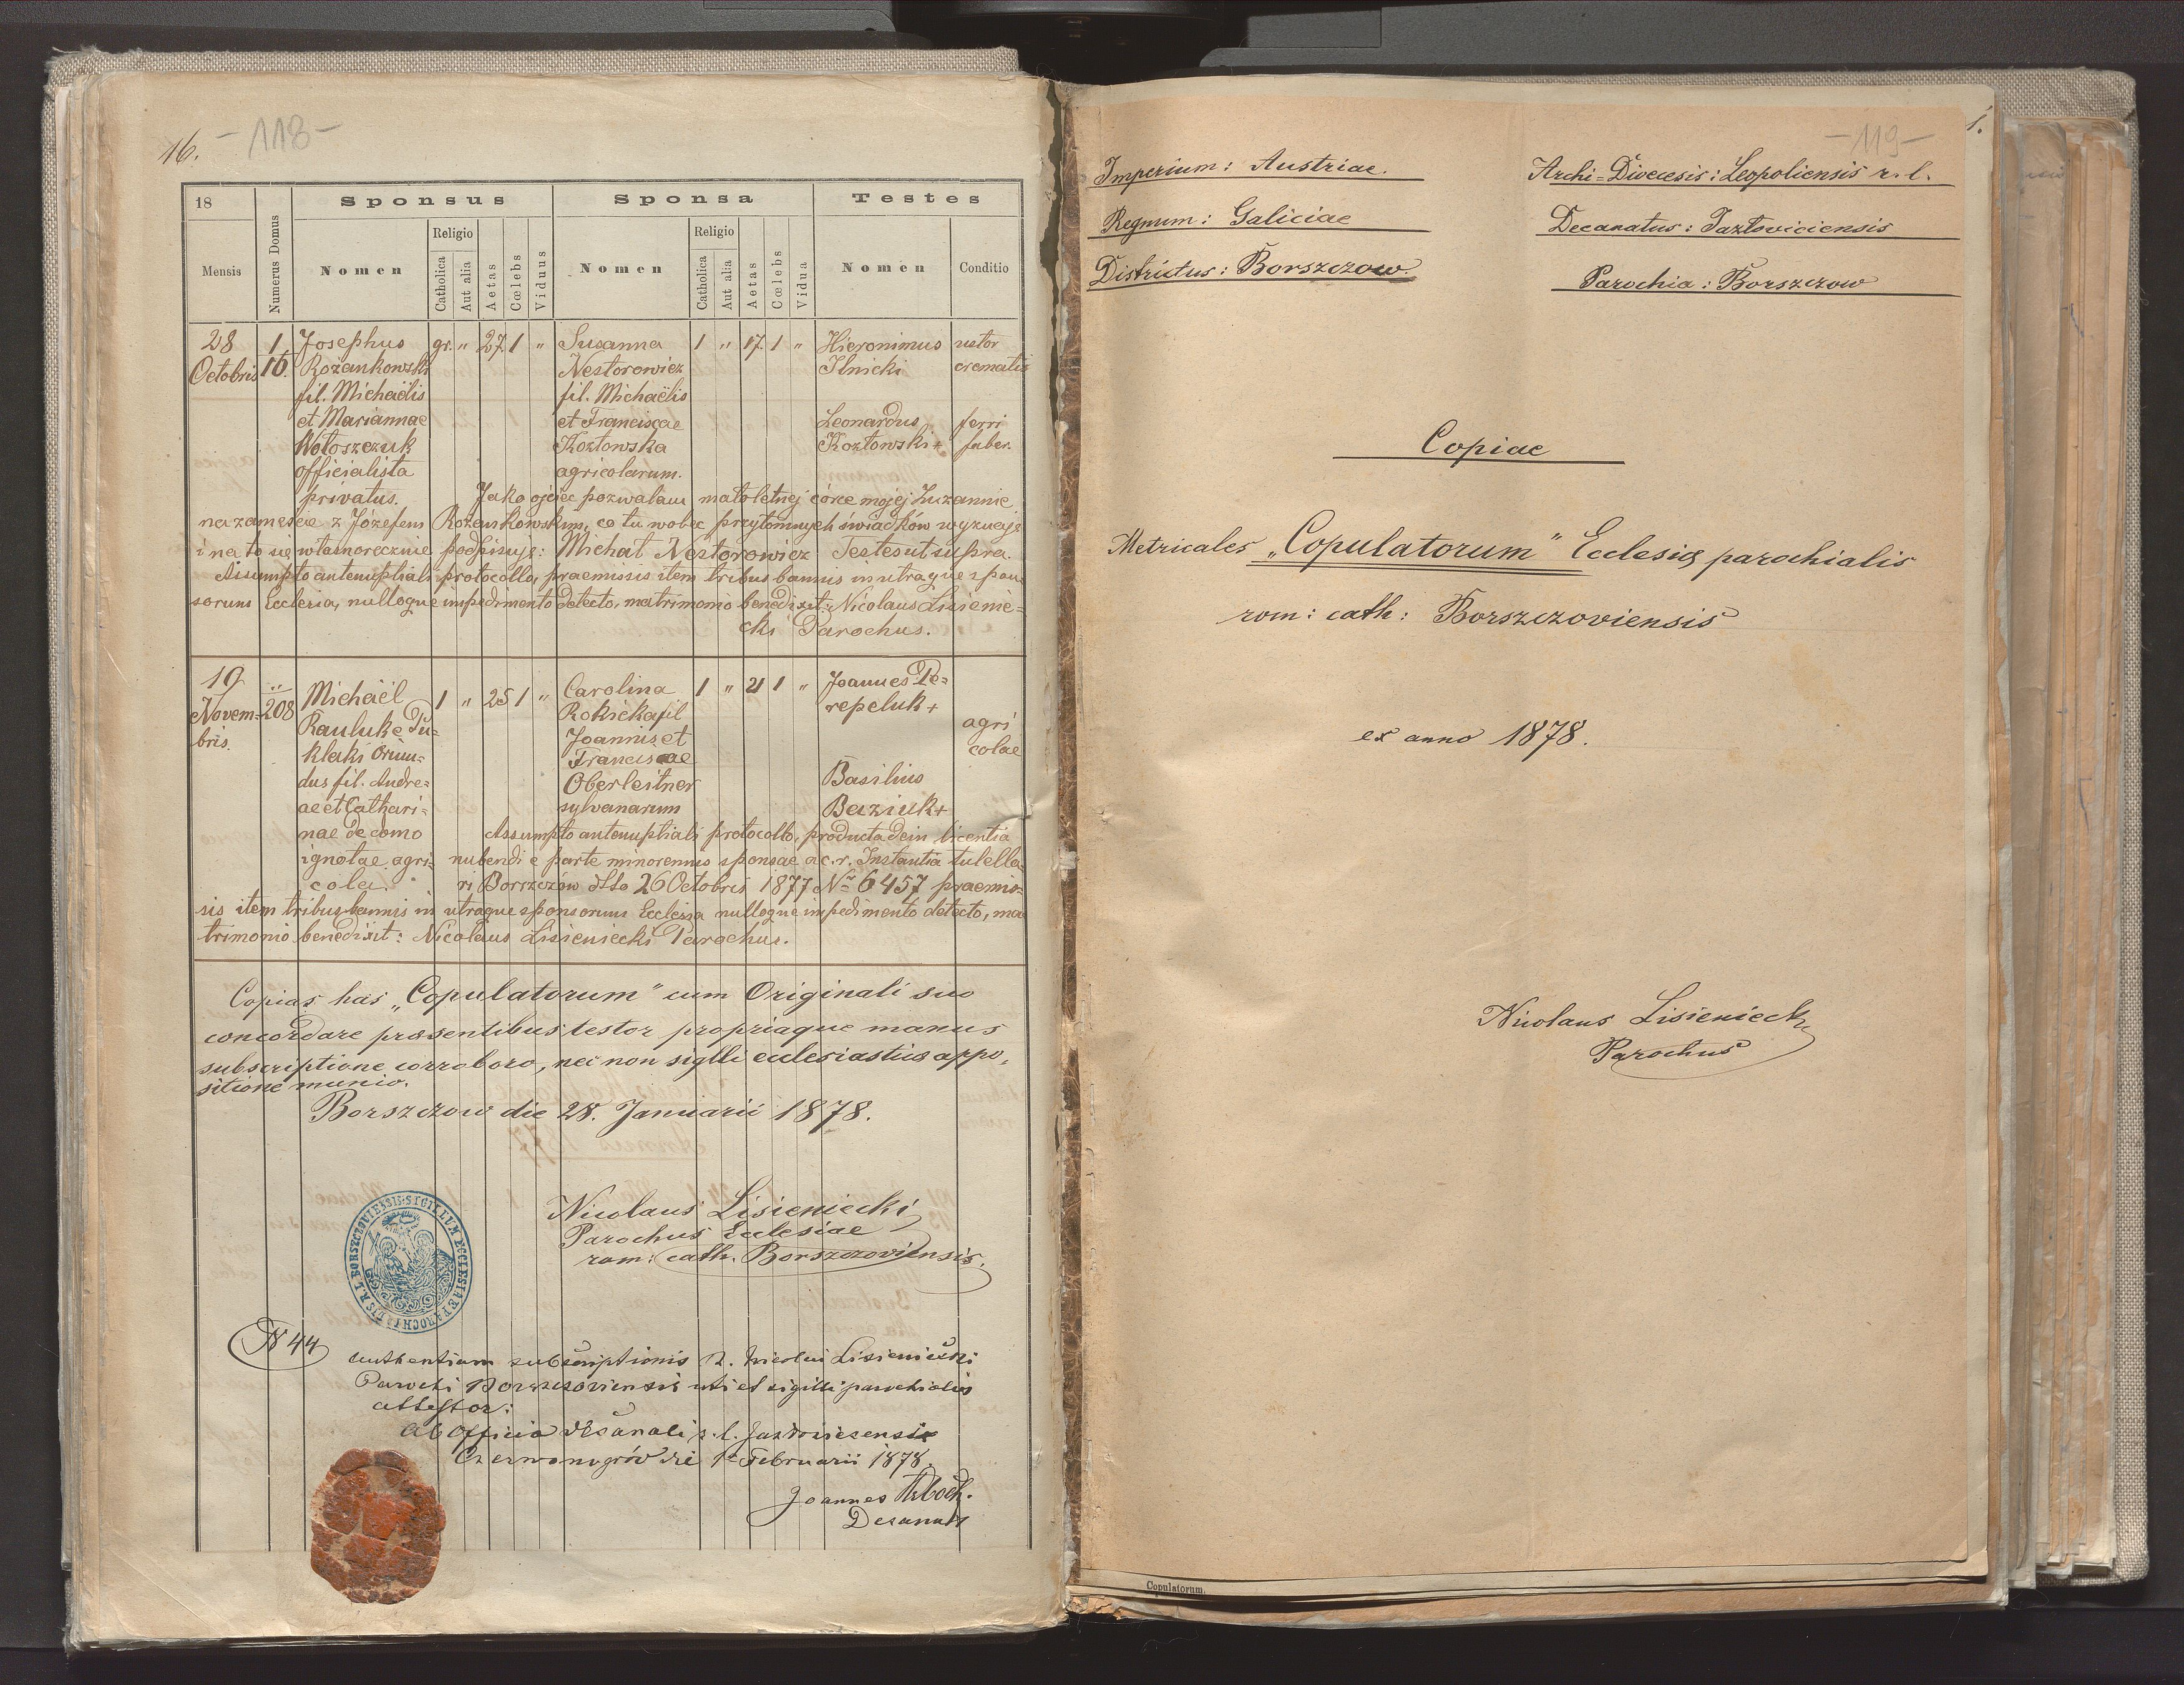 16. -118-
18 Sponsus Sponsa Testes
Mensis Numerus Domus Nomen Religio Catholica Aut alia Aetas Cœlebs Viduus Nomen Religio Catholica Aut alia Aetas Cœlebs Vidua Nomen Conditio
28 1. Josephus gr. " 27. 1 " Susanna 1 " 17. 1 " Hieronimus ustor
Octobris 16. Rożankowski Nestorowicz Ilnicki crematis
fil. Michaëlis fil. Michaëlis
et Mariannae et Franciscae Leonardus ferri
Wołoszczuk Kozłowska Kozłowski + faber.
officialista agricolarum.
privatus. Jako ojciec pozwalam małoletnej córce mojej Zuzannie
na zamęście z Józefem Rożankowskim, co tu wobec przytomnych świadków wyznaję
i na to się własnoręcznie podpisuję: Michał Nestorowicz Testes ut supra.
Assumpto antenuptiali protocollo, praemissis item tribus bannis in utraque spon-
sorum Ecclesia, nulloque impedimento detecto, matrimonio benedixit: Nicolaus Lisienie-
cki Parochus.
19 " Michaël 1 " 25 1 " Carolina 1 " 21 1 " Joannes Pe-
Novem- 208 Rauluk e Tu- Rokicka fil repeluk +
bris. klaki oriun- Joannis et agri
dus fil. Andre- Franciscae colae
ae et Cathari- Oberleitner Basilius
nae de como sylvanarum Baziuk +
ignotae agri- Assumpto antenuptiali protocollo, producta dein licentia
cola. nubendi e parte minorennis sponsae a c. r. Instantia tutella-
ri Borszczów dto 26 Octobris 1877 Nr 6457 praemis-
sis item tribus bannis in utraque sponsorum Ecclesia nulloque impedimento detecto, ma
trimonio benedixit: Nicolaus Lisieniecki Parochus.
Copias has „Copulatorum" cum Originali suo
concordare præsentibus testor propriaque manus
subscriptione corroboro, nec non siglli ecclesiastici appo,
sitione munio.
Borszczow die 28. Januarii 1878.
Nicolaus Lisieniecki
Parochus Ecclesiae
rom: cath. Borszczoviensis.
SIGILLUM ECCLESIAE PAROCHIALIS R. L. BORSZCZOVIENSIS
N 44
authentiam subscriptionis R. Nicolai Lisieniecki
Parochi Borszczoviensis uti et sigilli parochialis
attestor:
Ab Officio decanali r. l. Jazłoviecensi
Czerwonogród die 1a Februarii 1878.
Joannes
Decanus
-119- 1.
Imperium: Austriae.
Regnum: Galiciae
Districtus: Borszczow.
Archi-Divecesis: Leopoliensis r. l.
Decanatus: Jazłoviciensis
Parochia: Borszczow
Copiae
Metricales „Copulatorum" Ecclesiæ parochialis
rom: cath: Borszczoviensis
ex anno 1878.
Nicolaus Lisieniecki
Parochus
Copulatorum.